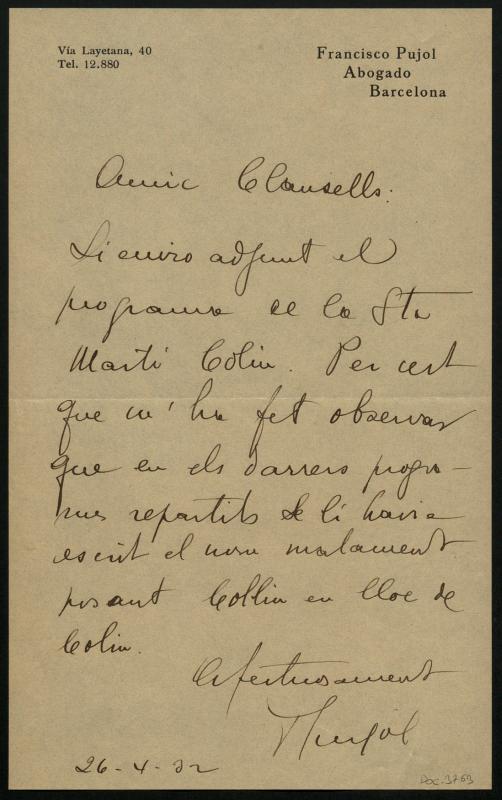 Vía Layetana, 40
Tel. 12.880
Francisco Pujol
Abogado
Barcelona
Amic Clausells:
Li envio adjunt el
programa de la Sta
Martí Colin. Per cert
que m'ha fet observar
que en els darrers progra-
mes repartits se li havia
escrit el nom malament
posant Collin en lloc de
Colin.
Afectuosament
FPujol
26-4-32
Doc-3763